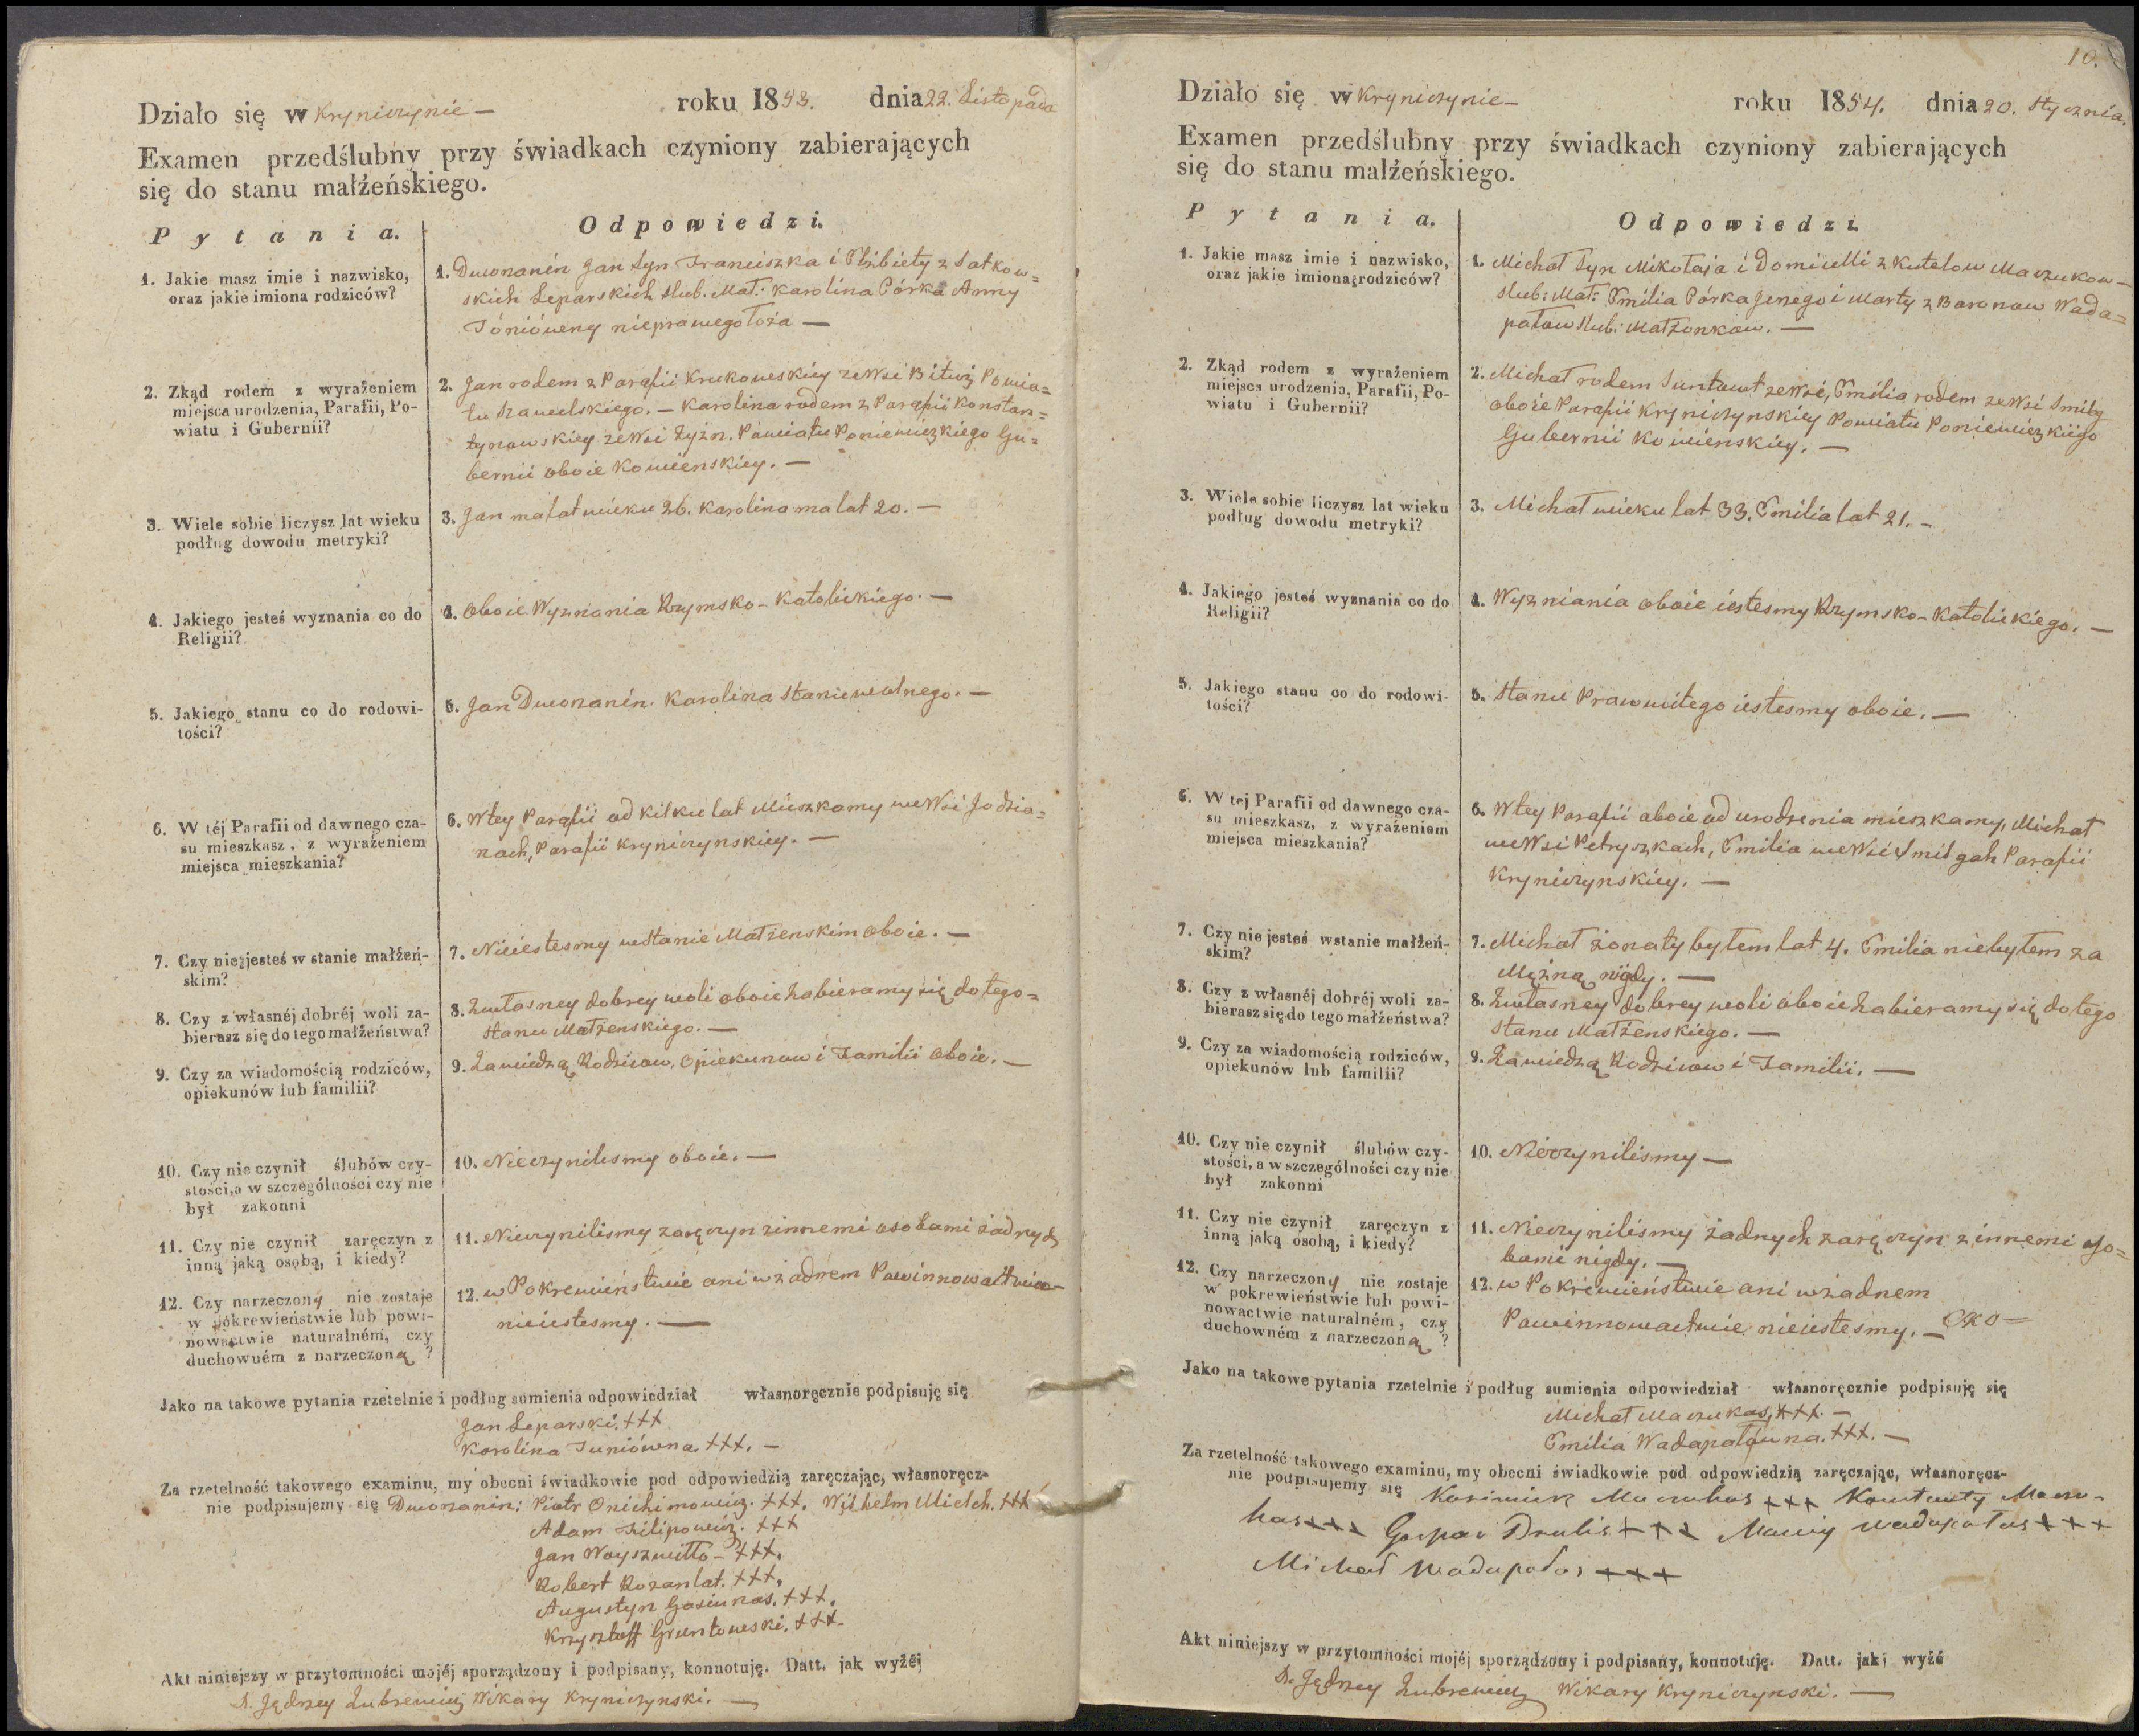 Działo się w Kryniczynie — roku 1853. dnia 22. Listopada
Examen przedślubny przy świadkach czyniony zabierających
się do stanu małżeńskiego.
Pytania. Odpowiedzi.
1. Jakie masz imie i nazwisko,
oraz jakie imiona rodziców?
1. Dworzanin Jan Syn Franciszka i Elżbiety z Satkow=
skich Leparskich slub. Mał: Karolina Córka Anny
nieprawego łoża —
2. Zkąd rodem z wyrażeniem
miejsca urodzenia, Parafii, Po-
wiatu i Gubernii?
2. Jan rodem z Parafii Krukowskiey ze Wsi Powia=
tu Szawelskiego. — Karolina rodem z Parafii Konstan=
tynowskiey ze Wsi Powiatu Poniewiezkiego Gu=
bernii oboie Kowienskiey. —
3. Wiele sobie liczysz lat wieku
podług dowodu metryki?
3. Jan ma lat wieku 26. Karolina ma lat 20. —
4. Jakiego jesteś wyznania co do
Religii?
4. Oboie Wyznania Rzymsko-Katolickiego. —
5. Jakiego stanu co do rodowi-
tości?
5. Jan Dworzanin. Karolina Stanu wolnego. —
6. W téj Parafii od dawnego cza-
su mieszkasz, z wyrażeniem
miejsca mieszkania?
6. W tey Parafii od kilku lat Mieszkamy we Wsi Jodzio=
nach, Parafii Kryniczynskiey. —
7. Czy nie jesteś w stanie małżeń-
skim?
7. Nieiestesmy w Stanie Małżenskim oboie. —
8. Czy z własnéj dobréj woli za-
bierasz się do tego małżeństwa?
8. Zwłasney dobrey woli oboie Zabieramy się do tego=
Stanu Małżenskiego. —
9. Czy za wiadomością rodziców,
opiekunów lub familii?
9. Za wiedzą Rodzicow, Opiekunow i Familii oboie. —
10. Czy nie czynił ślubów czy-
stości, a w szczególności czy nie
był zakonni
10. Nieczynilismy oboie. —
11. Czy nie czynił zaręczyn z
inną jaką osobą, i kiedy?
11. Nieczynilismy zaręczyn zinnemi osobami żadnych
12. Czy narzeczony nie zostaje
w pokrewieństwie lub powi-
nowactwie naturalném, czy
duchowném z narzeczoną ?
12. w Pokrewieństwie ani w żadnem Powinnowactwie —
nieiestesmy. —
Jako na takowe pytania rzetelnie i podług sumienia odpowiedział własnoręcznie podpisuję się
Jan Leparski. +++
Karolina Juniówena. +++. —
Za rzetelność takowego examinu, my obecni świadkowie pod odpowiedzią zaręczając, własnoręcz-
nie podpisujemy się Dworzanin: Piotr Onichimowicz. +++. Wilhelm Mielch. +++
Adam Filipowicz. +++
Jan Woyszwiłło — +++.
Robert Rozanlat. +++.
Augustyn Gasiunas. +++.
Krzysztoff Gruntowski. +++.
Akt niniejszy w przytomności mojéj sporządzony i podpisany, konnotuję. Datt. jak wyżéj
X. Jędrzey Zubrewicz Wikary Kryniczynski. —
10.
Działo się w Kryniczynie — roku 1854. dnia 20. Stycznia.
Examen przedślubny przy świadkach czyniony zabierających
się do stanu małżeńskiego.
Pytania. Odpowiedzi.
1. Jakie masz imie i nazwisko,
oraz jakie imiona rodziców?
1. Michał Syn Mikołaja i Domicelli z Kutelow Maczukow —
slub: Mał: Emilia Córka Jerzego i Marty z Baronow Wada=
pałow slub: Małżonkow. —
2. Zkąd rodem z wyrażeniem
miejsca urodzenia, Parafii, Po-
wiatu i Gubernii?
2. Michał rodem ze Wsi, Emilia rodem ze Wsi Smilg
oboie Parafii Kryniczynskiey Powiatu Poniewiezkiego
Gubernii Kowienskiey. —
3. Wiele sobie liczysz lat wieku
podług dowodu metryki?
3. Michał wieku lat 33. Emilia lat 21. —
4. Jakiego jesteś wyznania co do
Religii?
4. Wyzniania oboie iestesmy Rzymsko-Katolickiego. —
5. Jakiego stanu co do rodowi-
tości?
5. Stanu Prawnitego iestesmy oboie. —
6. W tej Parafii od dawnego cza-
su mieszkasz, z wyrażeniem
miejsca mieszkania?
6. W tey Parafii oboie od urodzenia mieszkamy, Michał
we Wsi Petryszkach, Emilia we Wsi Smilgah Parafii
Kryniczynskiey. —
7. Czy nie jesteś w stanie małżeń-
skim?
7. Michał żonaty byłem lat 4. Emilia niebyłem za
Mężną nigdy. —
8. Czy z własnéj dobréj woli za-
bierasz się do tego małżeństwa?
8. Zwłasney dobrey woli oboie Zabieramy się do tego
Stanu Małżenskiego. —
9. Czy za wiadomością rodziców,
opiekunów lub familii?
9. Za wiedzą Rodzicow i Familii. —
10. Czy nie czynił ślubów czy-
stości, a w szczególności czy nie
był zakonni
10. Nieczynilismy —
11. Czy nie czynił zaręczyn z
inną jaką osobą, i kiedy?
11. Nieczynilismy żadnych zaręczyn z innemi oso=
bami nigdy. —
12. Czy narzeczony nie zostaje
w pokrewieństwie lub powi-
nowactwie naturalném, czy
duchowném z narzeczoną ?
12. w Pokrewieństwie ani w żadnem
Powinnowactwie nieiestesmy. —
Jako na takowe pytania rzetelnie i podług sumienia odpowiedział własnoręcznie podpisuję się
Michał Maczukas, +++. —
Emilia Wadapałówna. +++. —
Za rzetelność takowego examinu, my obecni świadkowie pod odpowiedzią zaręczając, własnoręcz-
nie podpisujemy się Kazimierz Maczukas +++ Konstanty Maczu-
kas +++ Gaspar Drulis +++ Maciey Wadapałas +++
Michał Wadapałas +++
Akt niniejszy w przytomności mojéj sporządzony i podpisany, konnotuję. Datt. jak wyżé
X. Jędrzey Zubrewicz Wikary Kryniczynski. —